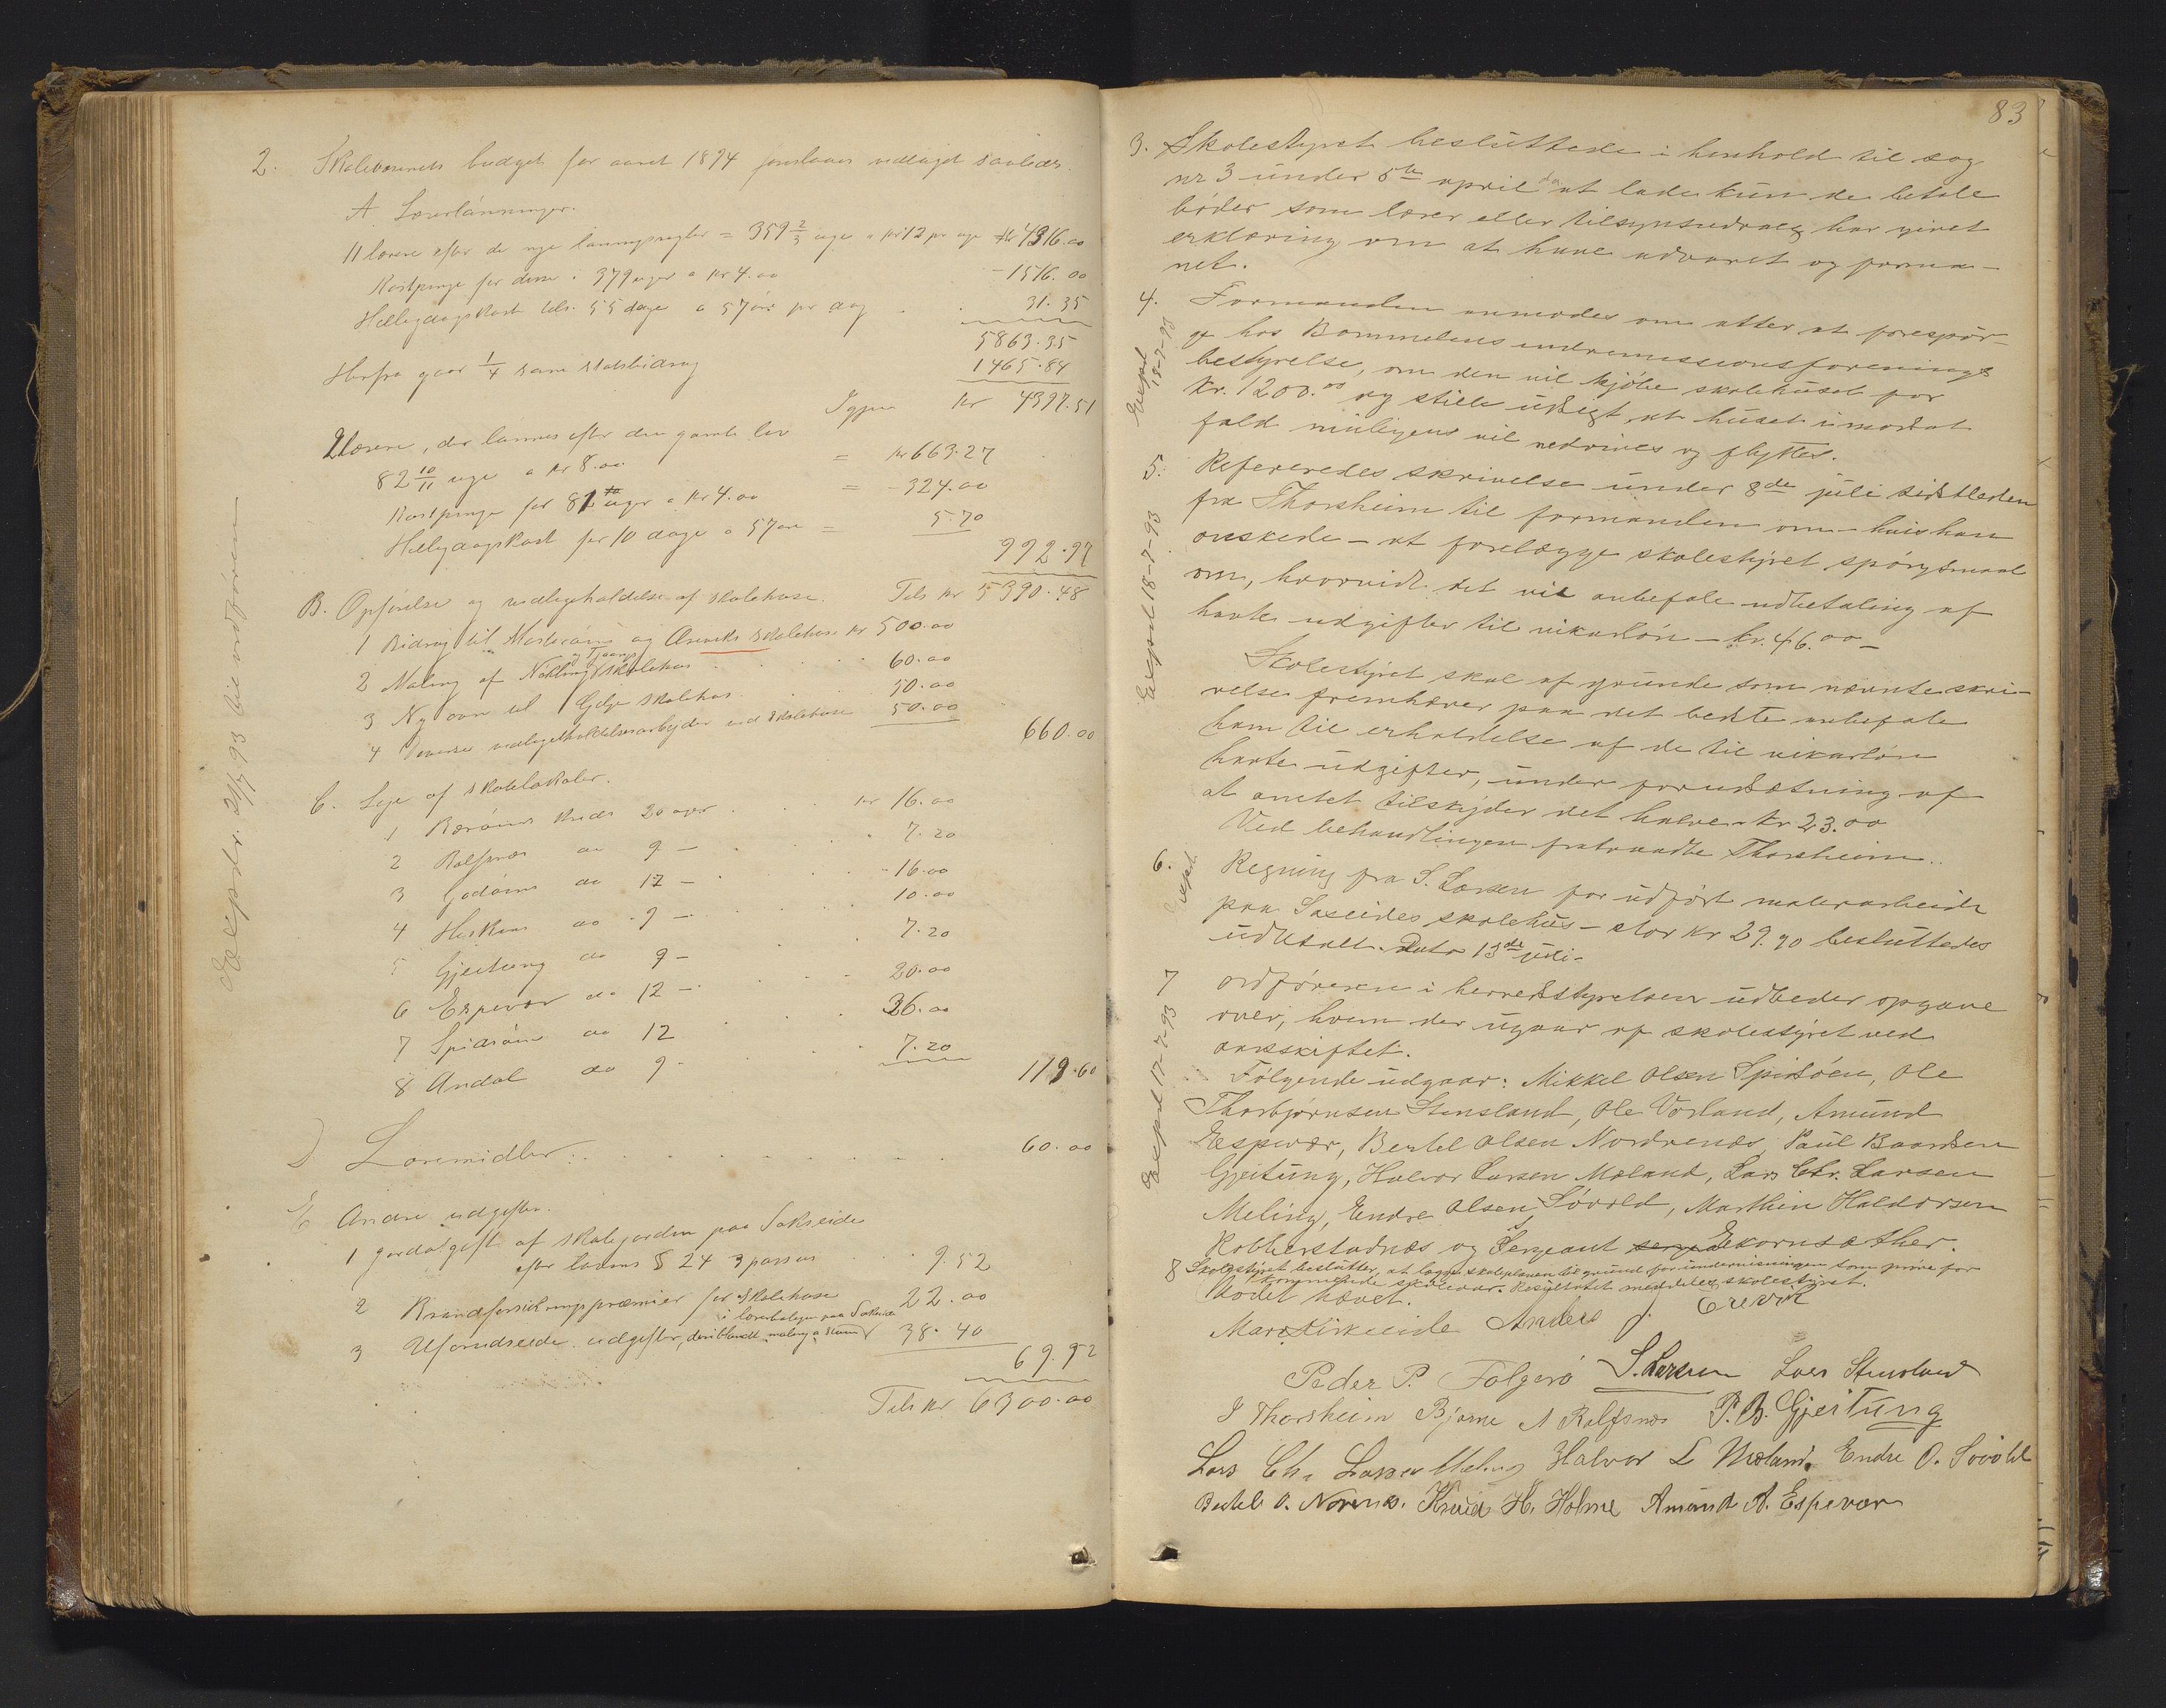 2. Skolevæsenets budget for aaret 1894 foreslaaes vedtaget saaledes.
A Lærerlønninger.
11 lærere efter de nye lønningsregler = 359 2/3 uge a kr 12 pr uge kr 4316.00
Kostpenge for disse i 379 uger a kr 4.00 - 1516.00
Helligdagskost tils. 55 dage a 57 øre pr dag 31.35
5863.35
Herfra gaar 1/4 som statsbidrag 1465.84
Igjen kr 4397.51
2 lærere, der lønnes efter den gamle lov
82 10/11 uge a kr 8.00 = kr 663.27
Kostpenge for 81 uger a kr 4.00 = - 324.00
Helligdagskost for 10 dage a 57 øre = 5.70
992.97
Tils kr 5390.48
B. Opførelse og vedligeholdelse af skolehuse.
1 Bidrag til og skolehuse kr 500.00
2 Maling af skolehus 60.00
3 Ny ovn til skolehus 50.00
4 Diverse vedligeholdelsesarbeider ved skolehuse 50.00
660.00
C. Leje af skolelokaler.
1 Børøens kreds 20 uger kr 16.00
2 Rolfsnes do 9 - 7.20
3 Godøens do 12 - 16.00
4 Hiskens do 9 - 10.00
5 Gjeitung do 9 - 7.20
6 Espevær do 12 - 20.00
7 Spidsøens do 12 36.00
8 Andal do 9 - 7.20
119.60
D Læremidler: 60.00
E Andre udgifter.
1 Jordafgift af skolejorden paa Sakseide
efter lovens § 24 3 passus 9.52
2 Brandforsikringspræmier for skolehuse 22.00
i lærerboligen paa Sakseide
3 Uforudseede udgifter, deriblandt maling a 38.40
69.92
Tils kr 6300.00
Exspedr. 21/7 93 til ordføreren
83
3. Skolestyret besluttede i henhold til sag
nr 3 under 5te april at lade kun de betale
bøder som lærer eller tilsynsudvalg har givet
erklæring om at have advaret og forma-
net.
4. Formanden anmodes om atter at forespør-
ge hos Bømmelens indremissionsforenings
bestyrelse, om den vil kjøbe skolehuset for
kr. 1200.00 og stille udsigt, at huset i modsat
fald muligens vil nedrives og flyttes.
Exspd 18-7-93
5. Refereredes skrivelse under 8de juli sidstleden
fra Thorsheim til formanden om - hvis han
ønskede - at forelægge skolestyret spørgsmaal
om, hvorvidt det vil anbefale udbetaling af
havte udgifter til vikarløn - kr. 46.00 -
Exspd 18-7-93
Skolestyret skal af grunde som nævnte skri-
velse fremhæver paa det bedste anbefale
ham til erholdelse af de til vikarløn
havte udgifter, under forudsætning af
at amtet tilskyder det halve - kr 23.00
Ved behandlingen fratraadte Thorsheim.
6. Regning fra S. Larsen for udført malerarbeide
paa Sakseides skolehus - stor kr 29.90 besluttedes
udbetalt. Dato 13de juli.
Exspd.
7 Ordføreren i herredsstyrelsen udbeder opgave
over, hvem der udgaar af skolestyret ved
aarsskiftet.
Exspd 17-7-93
Følgende udgaar: Mikkel Olsen Spidsøen, Ole
Thorbjørnsen Stensland, Ole Vorland, Amund
Espevær, Bertel Olsen Nordrenæs, Paul Baardsen
Gjeitung, Halvor Larsen Mæland, Lars Chr. Larsen
Meling, Endre Olsen Søvold, Marthin Haldorsen
Robberstadnæs og Sergeant Ekornsæther.
8 Skolestyret beslutter, at lægge skoleplanen til grund for undervisningen som prøve for
kommende skoleaar. Resultatet meddeles skolestyret.
Mødet hævet.
Mars Kirkeeide Anders J. Grevik
Peder P. Folgerø S. Larsen Lars Stensland
J Thorsheim Bjarne A Rolfsnes P. B. Gjeitung
Lars Ch. Larsen Meling Halvor L Mæland. Endre O. Søvold
Bertel O. Norenæs. Knud H. Holme Amund A. Espevær